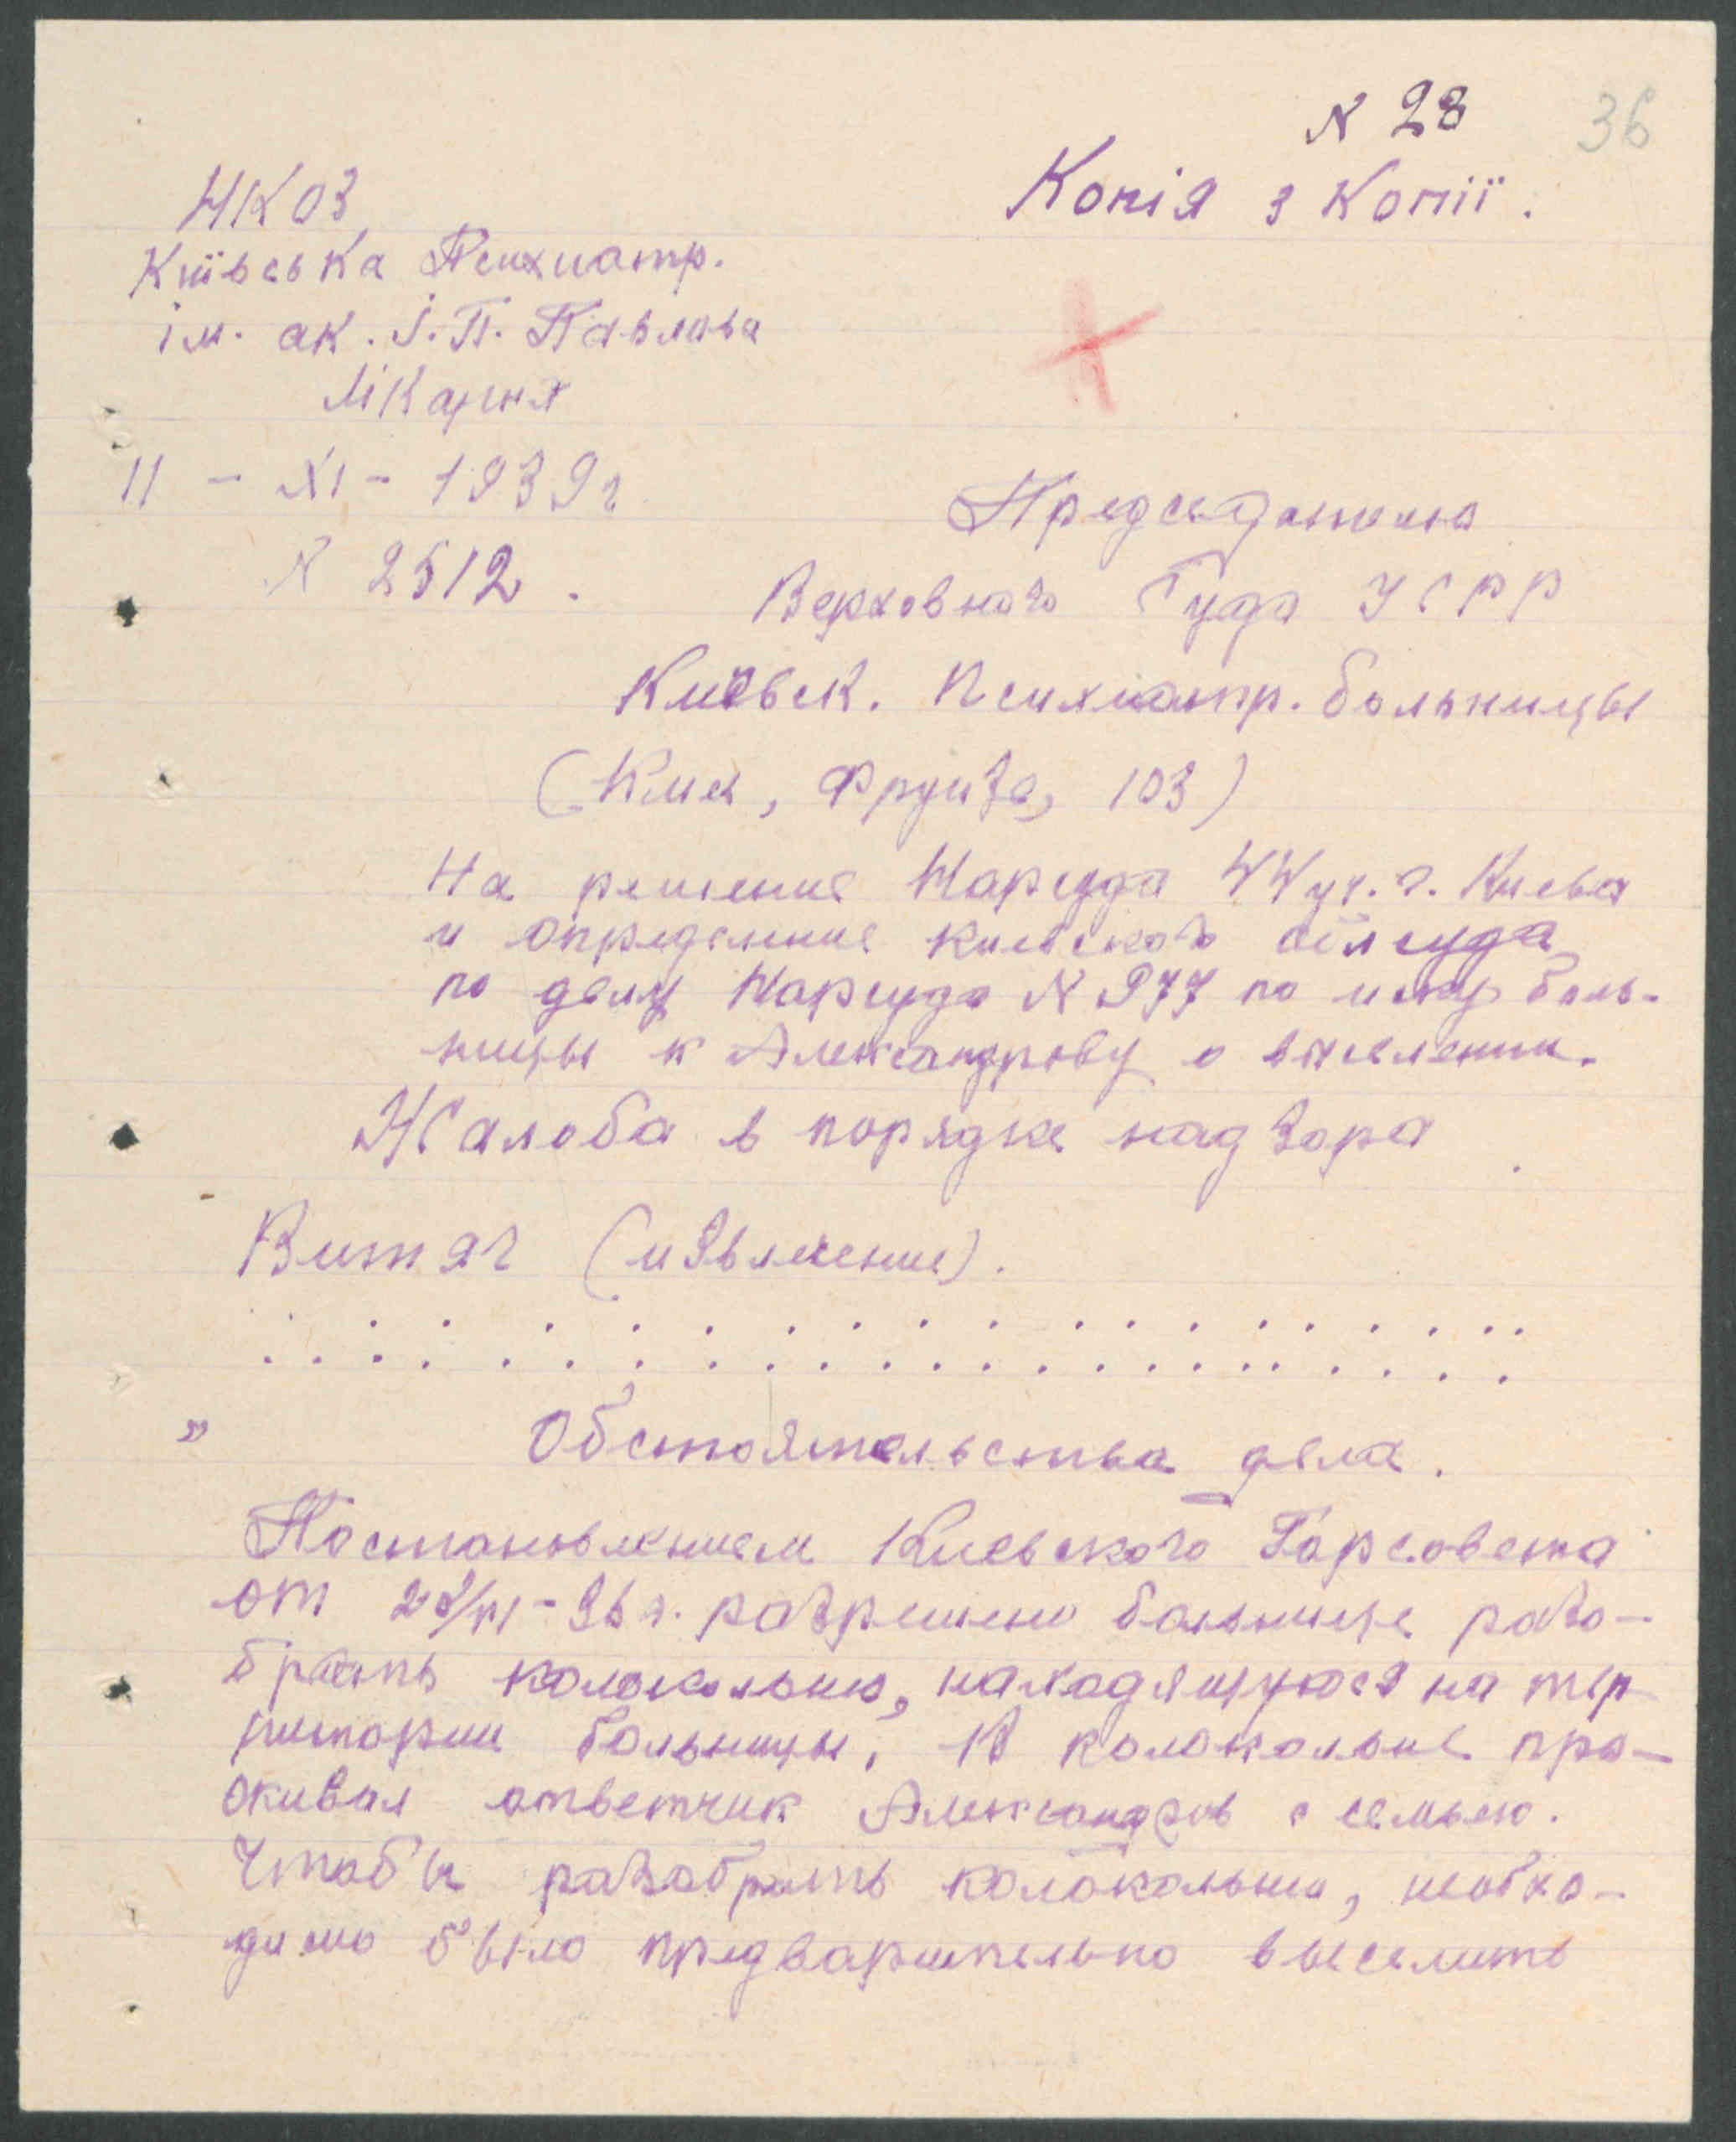 N 28 36
Копія з Копії.
НКОЗ
Київська Психиатр.
ім. ак. І. П. Павлова
Лікарня
11 - XI - 1939 г
N 2512.
Председателю
Верховного Суда УСРР
Киевск. Психиатр. больницы
(Киев, Фрунзе, 103)
На решение Нарсуда уч. г. Киева
и определение Киевского облсуда
по делу Нарсуда N 977 по иску боль-
ницы к Александрову о выселении.
Жалоба в порядке надзора
Витяг (извлечение).
. . . . . . . . . . . . . . . . . . .
. . . . . . . . . . . . . . . . . . . . .
" Обстоятельства дела.
Постановлением Киевского Горсовета
от разрешено больнице разо-
брать колокольню, находящуюся на тер
ритории больницы. В колокольне про-
живал ответчик Александров с семьею.
Чтобы разобрать колокольню, необхо-
димо было предварительно выселить